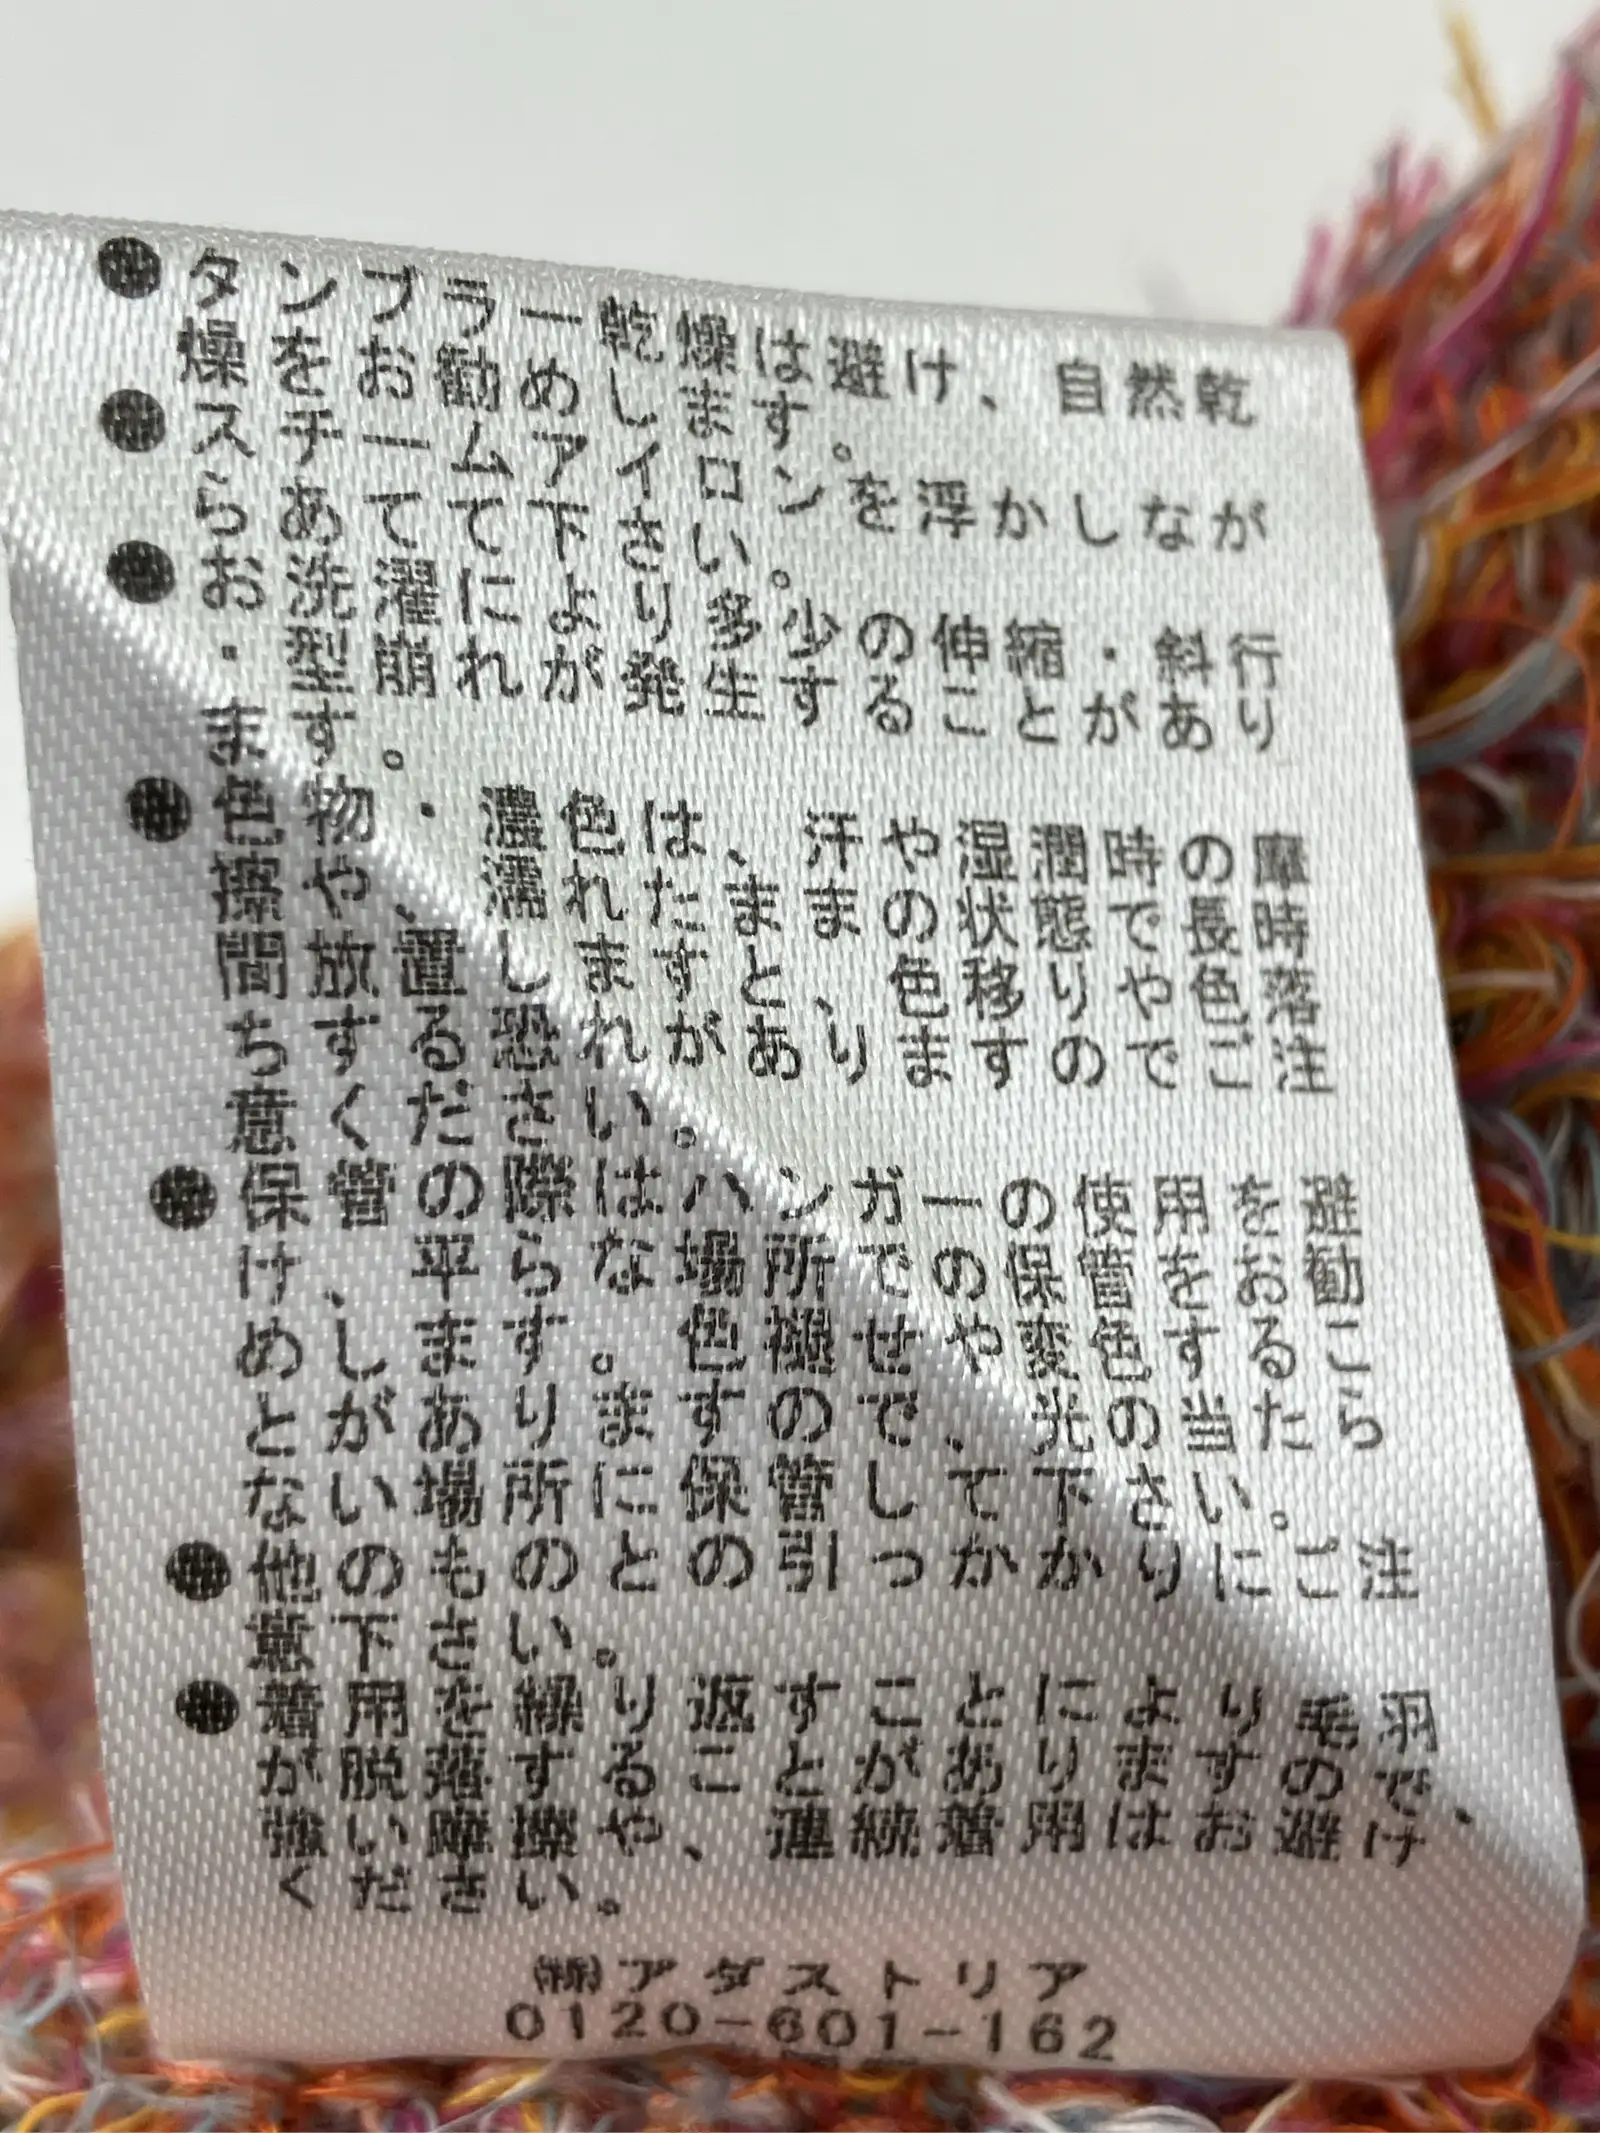 ●タンブラー乾燥は避け、自然乾
燥をお勧めします。
●スチームアイロンを浮かしなが
らあてて下さい。
●お洗濯により多少の伸縮・斜行
・型崩れが発生することがあり
ます。
●色物・濃色は、汗や湿潤時の摩
擦や、濡れたままの状態で長時
間放置しますと、色移りや色落
ちする恐れがありますのでご注
意ください。
●保管の際はハンガーの使用を避
け、平らな場所での保管をお勧
めします。色褪せや変色するこ
とがありますので、光の当たら
ない場所に保管して下さい。
●他のものとの引っかかりにご注
意下さい。
●着用を繰り返すことにより毛羽
が脱落することがありますので、
強い摩擦や、連続着用はお避け
ください。
㈱アダストリア
0120-601-162